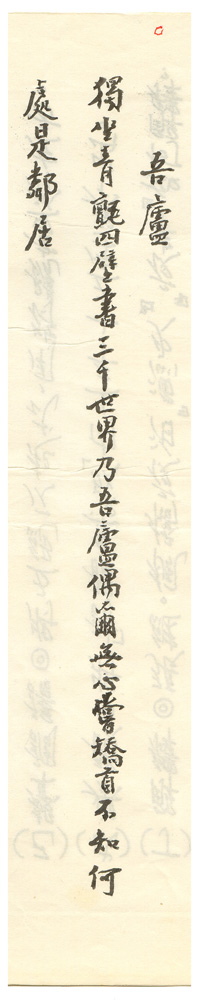 吾廬
獨坐青氈四壁書三千世界乃吾廬偶爾無心嘗矯首不知何
處是鄰居